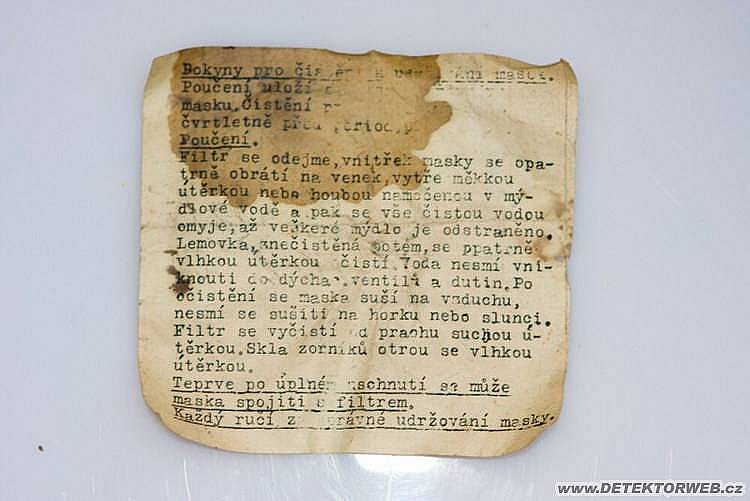 Pokyny pro masek.
Poučení uloží
masku. Čistění
čtvrtletně před period.
Poučení.
Filtr se odejme, vnitřek masky se opa-
trně obrátí na venek, vytře měkkou
útěrkou nebo houbou namočenou v mý-
dlové vodě a pak se vše čistou vodou
omyje, až veškeré mýdlo je odstraněno.
Lemovka, znečistěná potem, se ppatrně
vlhkou útěrkou čistí. Voda nesmí vni-
knouti do dýchac. ventilů a dutin. Po
očistění se maska suší na vzduchu,
nesmí se sušiti na horku nebo slunci.
Filtr se vyčistí od prachu suchou ú-
těrkou. Skla zorníků otrou se vlhkou
útěrkou.
Teprve po úplném uschnutí se může
maska spojiti s filtrem.
Každý ručí za správné udržování masky.
www.DETEKTORWEB.cz